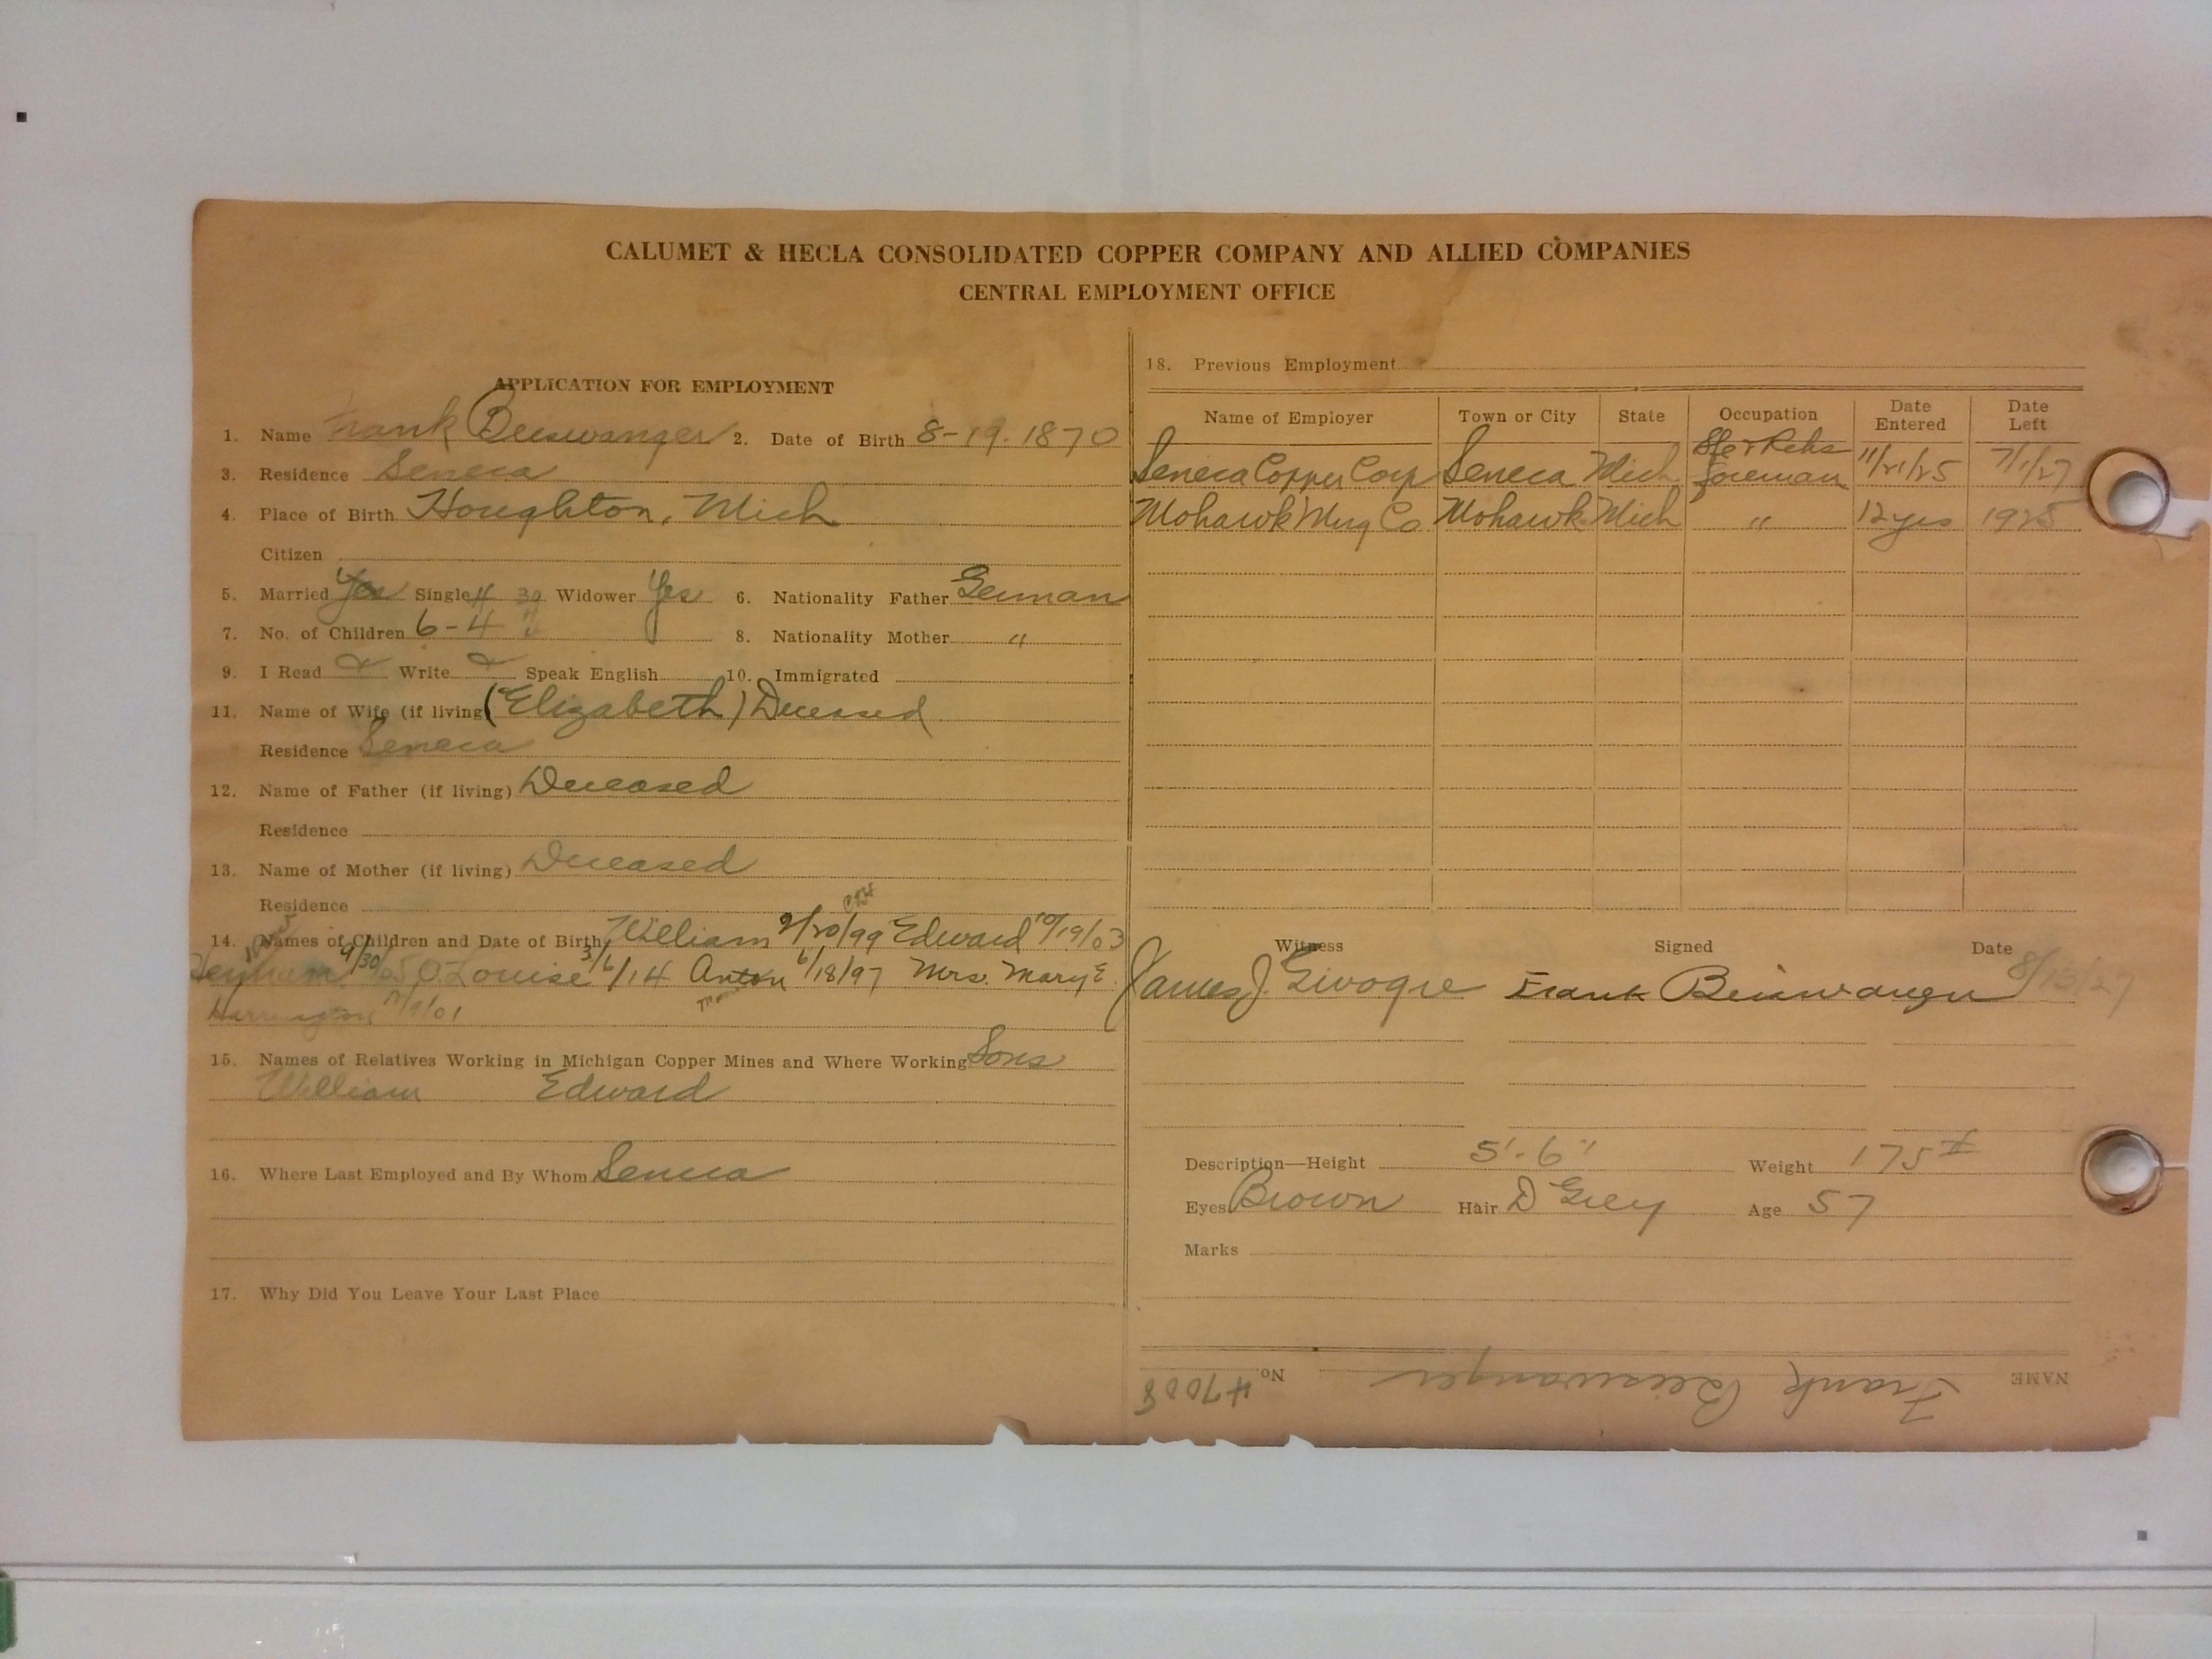 CALUMET & HECLA CONSOLIDATED COPPER COMPANY AND ALLIED COMPANIES
CENTRAL EMPLOYMENT OFFICE
APPLICATION FOR EMPLOYMENT
1. Name Frank Beiswanger 2. Date of Birth 8-19-1870
3. Residence Seneca
4. Place of Birth Houghton, Mich
Citizen
5. Married Yes Single Widower Yes 6. Nationality Father German
7. No. of Children 6-4 8. Nationality Mother "
9. I Read Write Speak English 10. Immigrated
11. Name of Wife (if living (Elizabeth) Deceased
Residence Seneca
12. Name of Father (if living) Deceased
Residence
13. Name of Mother (if living) Deceased
Residence
14. Names of Children and Date of Birth William 9/20/99 Edward 10/19/03
9/30/05 Louise 3/6/14 Anton 6/18/97 Mrs. Mary E.
Harrington /9/01
15. Names of Relatives Working in Michigan Copper Mines and Where Working Sons
William Edward
16. Where Last Employed and By Whom Seneca
17. Why Did You Leave Your Last Place
18. Previous Employment
Name of Employer Town or City State Occupation Date Entered Date Left
Seneca Copper Corp Seneca Mich Foreman 11/21/25 7/1/27
Mohawk Mng Co Mohawk Mich " 12 yrs 1925
Witness Signed Date
James J. Frank Beiswanger 8/13/27
Description—Height 5'-6" Weight 175#
Eyes Brown Hair D Grey Age 57
Marks
NAME Frank Beiswanger No. 47008